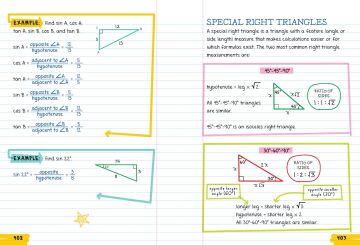 EXAMPLE Find sin A, cos A,
tan A, sin B, cos B, and tan B.
sin A = opposite ∠A / hypotenuse = 12 / 13
cos A = adjacent to ∠A / hypotenuse = 5 / 13
tan A = opposite ∠A / adjacent to ∠A = 12 / 5
sin B = opposite ∠B / hypotenuse = 5 / 13
cos B = adjacent to ∠B / hypotenuse = 12 / 13
tan B = opposite ∠B / adjacent to ∠B = 5 / 12
12
5
13
EXAMPLE Find sin 22°.
sin 22° = opposite / hypotenuse = 3 / 8
402
SPECIAL RIGHT TRIANGLES
A special right triangle is a triangle with a feature (angle or
side length measure) that makes calculations easier or for
which formulas exist. The two most common right triangle
measurements are:
45°-45°-90°
hypotenuse = leg x √2
All 45°-45°-90° triangles
are similar.
45°-45°-90° is an isosceles right triangle.
45°
45°
x
x
x√2
RATIO OF
SIDES
1 : 1 : √2
30°-60°-90°
60°
30°
x
2x
x√3
RATIO OF
SIDES
1 : 2 : √3
opposite longer
angle (60°)
opposite smaller
angle (30°)
longer leg = shorter leg x √3
hypotenuse = shorter leg x 2
All 30°-60°-90° triangles are similar.
403